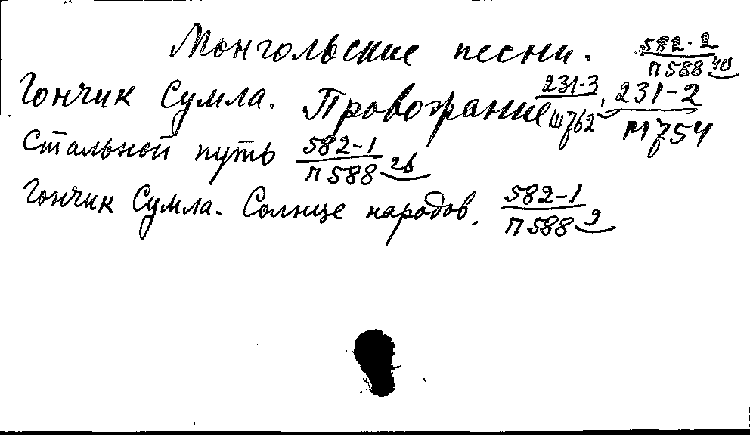 Монгольские песни. 582-2/П588 40
Гончик Сумла. Провожание 231-3/Ш762, 231-2/М754
Стальной путь 582-1/П588 26
Гончик Сумла. Солнце народов. 582-1/П588 9